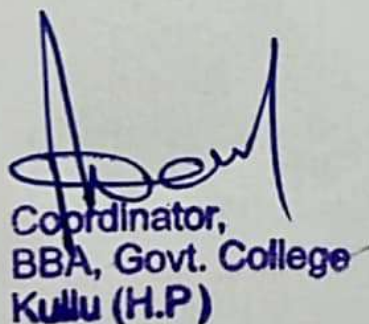 Coordinator,
BBA, Govt. College
Kullu (H.P)